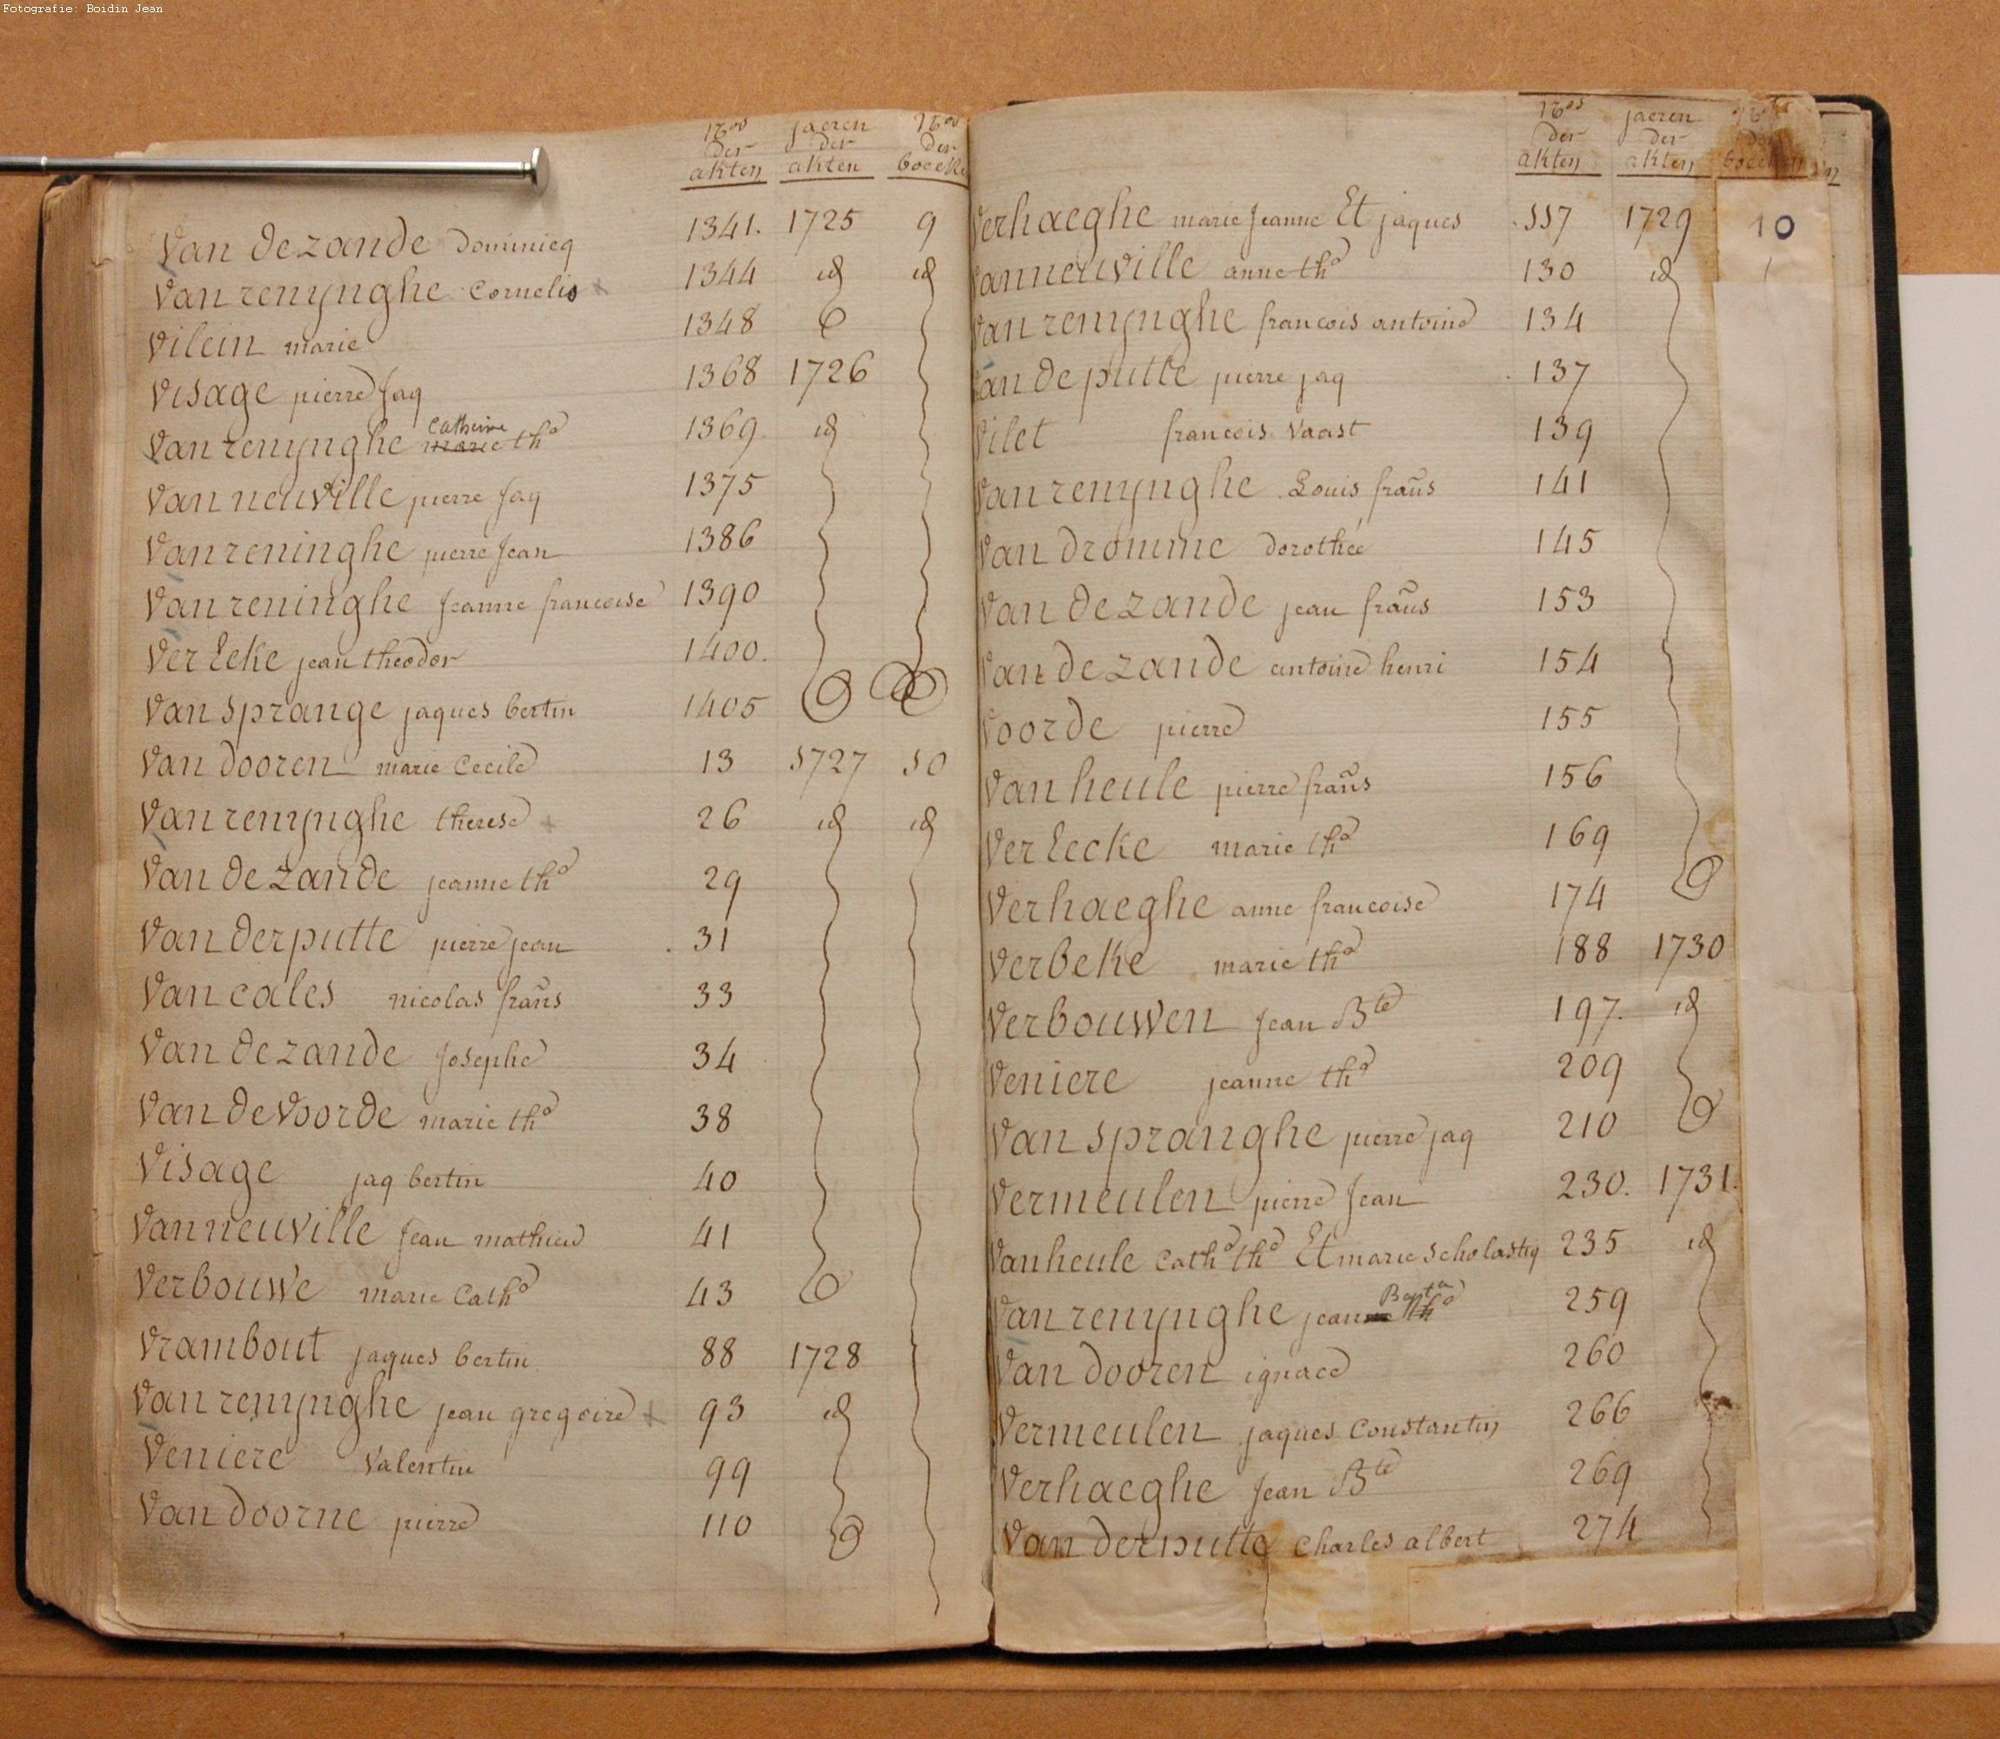 Fotografie: Boidin Jean
Nos der akten jaeren der akten Nos der boecken
Van de zande Dominicq 1341. 1725 9
Van renÿnghe Cornelis 1344 id id
Vilein marie 1348
Visage pierre Jaq 1368 1726
Van renÿnghe Catherine marie the 1369 id
Van neuville pierre Jaq 1375
Van reninghe pierre Jean 1386
Van reninghe Jeanne francoise 1390
Ver Leke jean theodor 1400.
Van sprange jaques bertin 1405
Van dooren marie Cecile 13 1727 10
Van renÿnghe therese 26 id id
Van de Zande jeanne the 29
Van der putte pierre jean 31
Van cales nicolas frans 33
Van de zande Josephe 34
Van de Voorde marie the 38
Visage jaq bertin 40
Van neuville Jean mathieu 41
Verbouwe marie Cathe 43
Vrambout jaques bertin 88 1728
Van renÿnghe jean gregoire 93 id
Veniere Valentin 99
Van doorne pierre 110
Nos der akten jaeren der akten Nos der boecken
Verhaeghe marie Jeanne Et jaques 117 1729 10
Vanneuville anne the 130 id
Van renÿnghe francois antoine 134
Van de putte pierre jaq 137
Vilet francois Vaast 139
Van renÿnghe Louis frans 141
Van dromme dorothée 145
Van de zande jean frans 153
Van de zande antoine henri 154
Voorde pierre 155
Van heule pierre frans 156
Ver Lecke marie the 169
Verhaeghe anne francoise 174
Verbeke marie the 188 1730
Verbouwen Jean Bte 197. id
Veniere jeanne the 209
Van spranghe pierre jaq 210
Vermeulen pierre Jean 230. 1731.
Vanheule Cathe the Et marie scholastiq 235 id
Van renÿnghe jeanne Bapte the 259
Van dooren ignace 260
Vermeulen jaques Constantin 266
Verhaeghe Jean Bte 269
Van der putte Charles albert 274